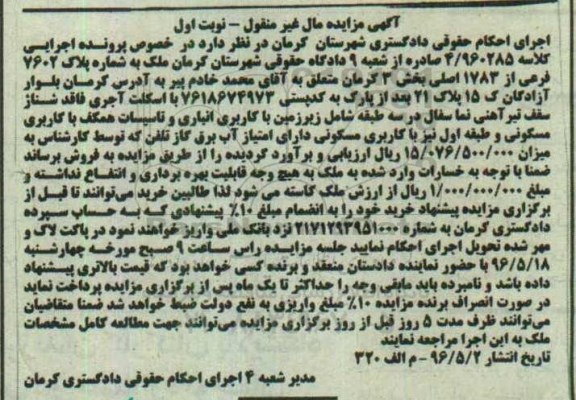 آگهی مزایده مال غیر منقول – نوبت اول
اجرای احکام حقوقی دادگستری شهرستان کرمان در نظر دارد در خصوص پرونده اجرایی
کلاسه ۴/۹۶۰۲۸۵ صادره از شعبه ۹ دادگاه حقوقی شهرستان کرمان ملک به شماره پلاک ۷۶۰۲
فرعی از ۱۷۸۳ اصلی بخش ۳ کرمان متعلق به آقای محمد خادم پیر به آدرس کرمان بلوار
آزادگان ک ۱۵ پلاک ۲۱ بعد از پارک به کدپستی ۷۶۱۸۶۷۴۹۷۳ با اسکلت آجری فاقد شناژ
سقف تیرآهنی نما سفال در سه طبقه شامل زیرزمین با کاربری انباری و تاسیسات همکف با کاربری
مسکونی و طبقه اول نیز با کاربری مسکونی دارای امتیاز آب برق گاز تلفن که توسط کارشناس به
میزان ۱۵/۰۷۶/۵۰۰/۰۰۰ ریال ارزیابی و برآورد گردیده را از طریق مزایده به فروش برساند
ضمنا با توجه به خسارات وارد شده به ملک به هیچ وجه قابلیت بهره برداری و انتفاع نداشته و
مبلغ ۱/۰۰۰/۰۰۰/۰۰۰ ریال از ارزش ملک کاسته می شود لذا طالبین خرید می‌توانند تا قبل از
برگزاری مزایده پیشنهاد خرید خود را به انضمام مبلغ ۱۰٪ پیشنهادی که به حساب سپرده
دادگستری کرمان به شماره ۲۱۷۱۲۹۳۹۵۱۰۰۰ نزد بانک ملی واریز خواهند نمود در پاکت لاک و
مهر شده تحویل اجرای احکام نمایید جلسه مزایده راس ساعت ۹ صبح مورخه چهارشنبه
۹۶/۵/۱۸ با حضور نماینده دادستان منعقد و برنده کسی خواهد بود که قیمت بالاتری پیشنهاد
داده باشد و نامبرده باید مابقی وجه را حداکثر تا یک ماه پس از برگزاری مزایده پرداخت نماید
در صورت انصراف برنده مزایده ۱۰٪ مبلغ واریزی به نفع دولت ضبط خواهد شد ضمنا متقاضیان
می‌توانند ظرف مدت ۵ روز قبل از روز برگزاری مزایده می‌توانند جهت مطالعه کامل مشخصات
ملک به این اجرا مراجعه نمایند
تاریخ انتشار ۹۶/۵/۲ – م الف ۳۲۰
مدیر شعبه ۴ اجرای احکام حقوقی دادگستری کرمان